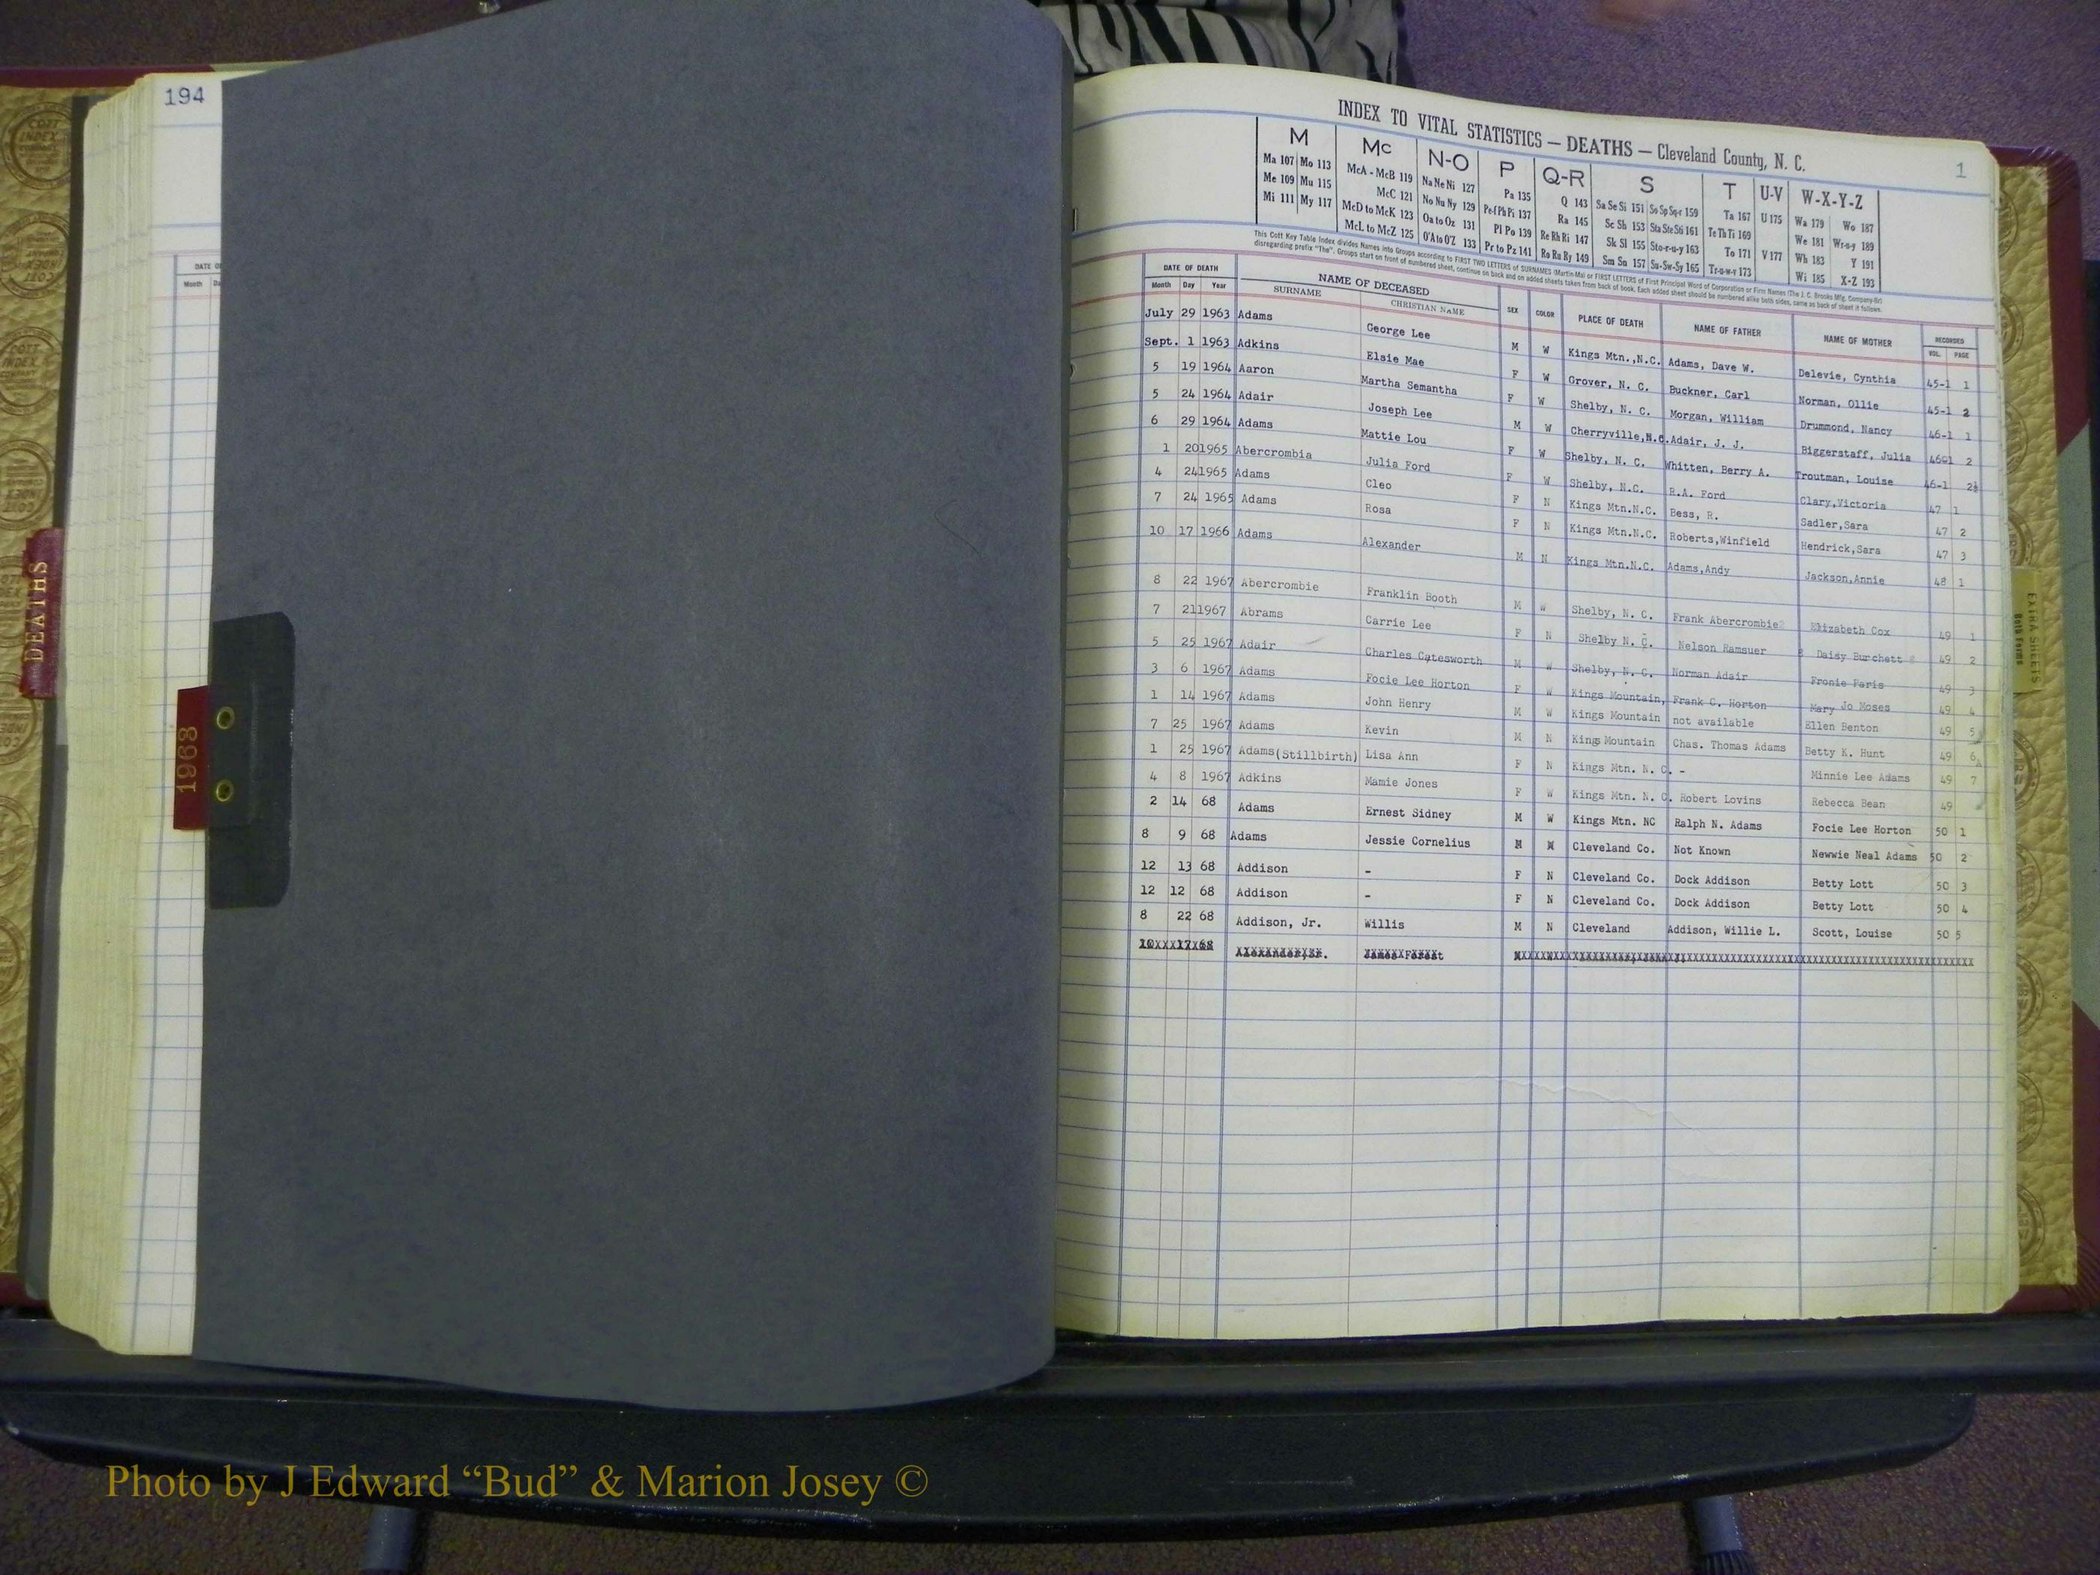 194
DATE OF
Month Da
DEATHS
1968
INDEX TO VITAL STATISTICS — DEATHS — Cleveland County, N. C.
1
M Mc N-O P Q-R S T U-V W-X-Y-Z
Ma 107 Mo 113 McA - McB 119 Na Ne Ni 127 Pa 135 Q 143 Sa Se Si 151 So Sp Sq-r 159 Ta 167 U 175 Wa 179 Wo 187
Me 109 Mu 115 McC 121 No Nu Ny 129 Pe-f Ph Pi 137 Ra 145 Sc Sh 153 Sta Ste Sti 161 Te Th Ti 169 We 181 Wr-u-y 189
Mi 111 My 117 McD to McK 123 Oa to Oz 131 Pl Po 139 Re Rh Ri 147 Sk Sl 155 Sto-r-u-y 163 To 171 V 177 Wh 183 Y 191
McL to McZ 125 O'A to O'Z 133 Pr to Pz 141 Ro Ru Ry 149 Sm Sn 157 Su-Sw-Sy 165 Tr-u-w-y 173 Wi 185 X-Z 193
This Cott Key Table Index divides Names into Groups according to FIRST TWO LETTERS of SURNAMES (Martin-Ma) or FIRST LETTERS of First Principal Word of Corporation or Firm Names (The J. C. Brooks Mfg. Company-Br)
disregarding prefix "The". Groups start on front of numbered sheet, continue on back and on added sheets taken from back of book. Each added sheet should be numbered alike both sides, same as back of sheet it follows.
DATE OF DEATH NAME OF DECEASED SEX COLOR PLACE OF DEATH NAME OF FATHER NAME OF MOTHER RECORDED
Month Day Year SURNAME CHRISTIAN NAME VOL. PAGE
July 29 1963 Adams George Lee M W Kings Mtn.,N.C. Adams, Dave W. Delevie, Cynthia 45-1 1
Sept. 1 1963 Adkins Elsie Mae F W Grover, N. C. Buckner, Carl Norman, Ollie 45-1 2
5 19 1964 Aaron Martha Semantha F W Shelby, N. C. Morgan, William Drummond, Nancy 46-1 1
5 24 1964 Adair Joseph Lee M W Cherryville,N.C. Adair, J. J. Biggerstaff, Julia 46 1 2
6 29 1964 Adams Mattie Lou F W Shelby, N. C. Whitten, Berry A. Troutman, Louise 46-1 2½
1 20 1965 Abercrombia Julia Ford F W Shelby, N.C. R.A. Ford Clary,Victoria 47 1
4 24 1965 Adams Cleo F N Kings Mtn.N.C. Bess, R. Sadler,Sara 47 2
7 24 1965 Adams Rosa F N Kings Mtn.N.C. Roberts,Winfield Hendrick,Sara 47 3
10 17 1966 Adams Alexander M N Kings Mtn.N.C. Adams,Andy Jackson,Annie 48 1
8 22 1967 Abercrombie Franklin Booth M W Shelby, N. C. Frank Abercrombie Elizabeth Cox 49 1
7 21 1967 Abrams Carrie Lee F N Shelby N. C. Nelson Ramsuer Daisy Burchett 49 2
5 25 1967 Adair Charles Catesworth M W Shelby, N. C. Norman Adair Fronie Paris 49 3
3 6 1967 Adams Focie Lee Horton F W Kings Mountain, Frank C. Horton Mary Jo Moses 49 4
1 14 1967 Adams John Henry M W Kings Mountain not available Ellen Benton 49 5
7 25 1967 Adams Kevin M N Kings Mountain Chas. Thomas Adams Betty K. Hunt 49 6
1 25 1967 Adams(Stillbirth) Lisa Ann F N Kings Mtn. N. C. - Minnie Lee Adams 49 7
4 8 1967 Adkins Mamie Jones F W Kings Mtn. N. C. Robert Lovins Rebecca Bean 49
2 14 68 Adams Ernest Sidney M W Kings Mtn. NC Ralph N. Adams Focie Lee Horton 50 1
8 9 68 Adams Jessie Cornelius M W Cleveland Co. Not Known Newwie Neal Adams 50 2
12 13 68 Addison - F N Cleveland Co. Dock Addison Betty Lott 50 3
12 12 68 Addison - F N Cleveland Co. Dock Addison Betty Lott 50 4
8 22 68 Addison, Jr. Willis M N Cleveland Addison, Willie L. Scott, Louise 50 5
10 17 68 Alexander,Sr. James Forest
EXTRA SHEETS
Both Forms
Photo by J Edward “Bud” & Marion Josey ©